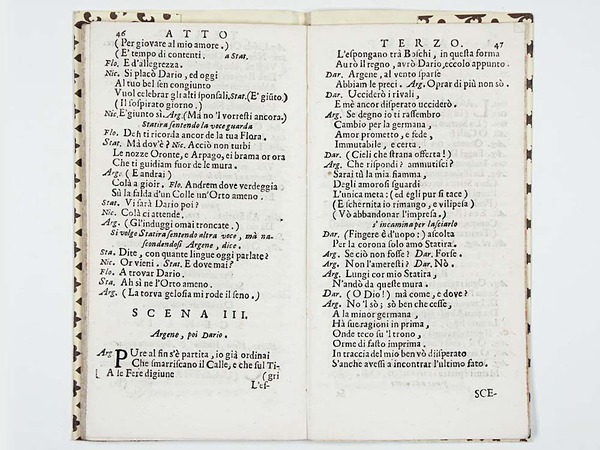 46 ATTO
(Per giovare al mio amore.)
(E' tempo di contenti. a Stat.
Flo. E d'allegrezza.
Nic. Si placò Dario, ed oggi
Al tuo bel sen congiunto
Vuol celebrar gli alti sponsali, Stat. (E' giusto)
(Il sospirato giorno.)
Nic. E' giunto sì. Arg. (Mà no'l vorresti ancora.)
Statira sentendo la voce guarda
Flo. Deh ti ricorda ancor de la tua Flora.
Stat. Mà dov'è? Nic. Acciò non turbi
Le nozze Oronte, e Arpago, ei brama or ora
Che ti guidiam fuor de le mura.
Arg. (E andrai)
Colà a gioir. Flo. Andrem dove verdeggia
Sù la falda d'un Colle un'Orto ameno.
Stat. Vi sarà Dario poi?
Nic. Colà ci attende.
Arg. (Gl'induggi omai troncate.)
Si volge Statira sentendo altra voce, mà nascondendosi
Argene, dice.
Sta. Dite, con quante lingue oggi parlate?
Nic. Or vieni. Stat. E dove mai?
Flo. A trovar Dario.
Sta. Ah sì ne l'Orto ameno.
Arg. (La torva gelosia mi rode il seno.)
SCENA III.
Argene, poi Dario.
Arg. PUre al fin s'è partita, io già ordinai
Che smarriscano il Calle, e che sul Ti-
A le Fere digiune (gri
L'es-
TERZO. 47
L'espongano trà Boschi, in questa forma
Aurò il regno, avrò Dario, eccolo appunto.
Dar. Argene, al vento sparse
Abbiam le preci. Arg. Oprar di più non sò.
Dar. Ucciderò i rivali,
E mè ancor disperato ucciderò.
Arg. Se degno io ti rassembro
Cambio per la germana,
Amor prometto, e fede,
Immutabile, e certa.
Dar. (Cieli che strana offerta!)
Arg. Che rispondi? ammutisci?
Sarai tù la mia fiamma,
Degli amorosi sguardi
L'unica meta: (ed egli pur si tace)
(E schernita io rimango, e vilipesa)
(Vò abbandonar l'impresa.)
s'incamina per lasciarlo
Dar. (Fingere è d'uopo:) ascolta
Per la corona solo amo Statira.
Arg. Se ciò non fosse? Dar. Forse.
Arg. Non l'ameresti? Dar. Nò.
Arg. Lungi cor mio Statira,
N'andò da queste mura.
Dar. (O Dio!) má come, e dove?
Arg. No'l sò; sò ben che cesse,
A la minor germana,
Hà sue ragioni in prima,
Onde teco su'l trono,
Orme di fasto imprima.
In traccia del mio ben vò disperato
S'anche avessi a incontrar l'ultimo fato.
SCE-